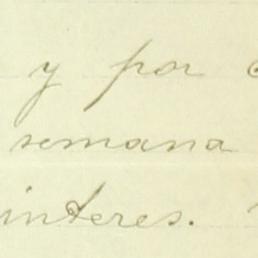 y por
semana
interes.